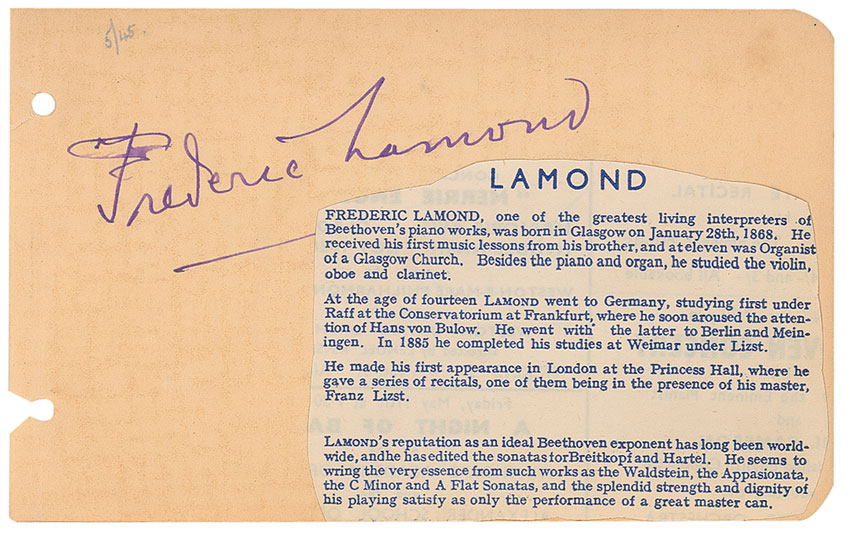 5/45.
Frederic Lamond
LAMOND
FREDERIC LAMOND, one of the greatest living interpreters of
Beethoven's piano works, was born in Glasgow on January 28th, 1868. He
received his first music lessons from his brother, and at eleven was Organist
of a Glasgow Church. Besides the piano and organ, he studied the violin,
oboe and clarinet.
At the age of fourteen LAMOND went to Germany, studying first under
Raff at the Conservatorium at Frankfurt, where he soon aroused the atten-
tion of Hans von Bulow. He went with the latter to Berlin and Mein-
ingen. In 1885 he completed his studies at Weimar under Lizst.
He made his first appearance in London at the Princess Hall, where he
gave a series of recitals, one of them being in the presence of his master,
Franz Lizst.
LAMOND'S reputation as an ideal Beethoven exponent has long been world-
wide, and he has edited the sonatas for Breitkopf and Hartel. He seems to
wring the very essence from such works as the Waldstein, the Appasionata,
the C Minor and A Flat Sonatas, and the splendid strength and dignity of
his playing satisfy as only the performance of a great master can.